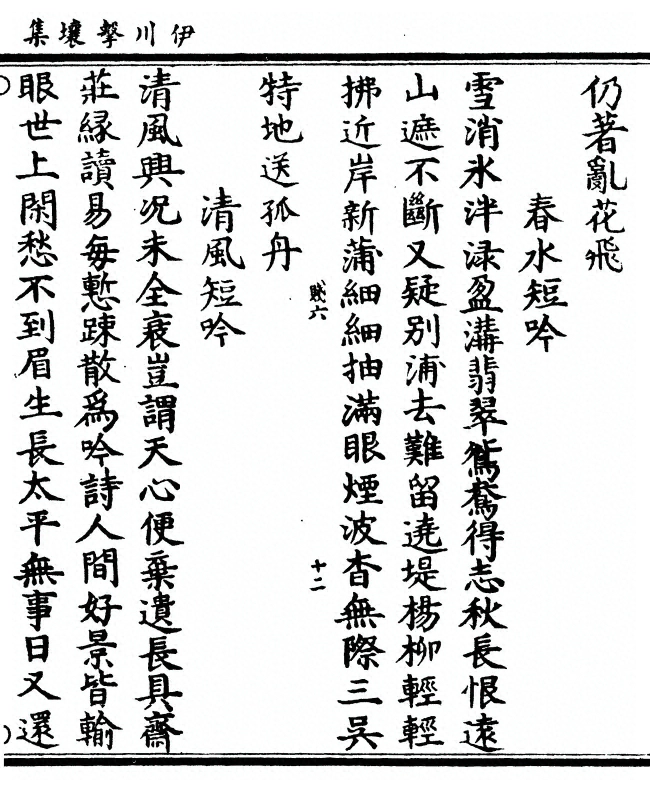 伊川擊壤集
仍著亂花飛
春水短吟
雪消氷泮淥盈溝翡翠鴛鴦得志秋長恨遠
山遮不斷又疑别浦去難留遶堤楊柳輕輕
拂近岸新蒲細細抽滿眼煙波杳無際三吳
特地送孤舟
賤六
十二
清風短吟
清風興况未全衰豈謂天心便棄遺長具齋
莊緣讀易每慙踈散爲吟詩人間好景皆輸
眼世上閑愁不到眉生長太平無事日又還